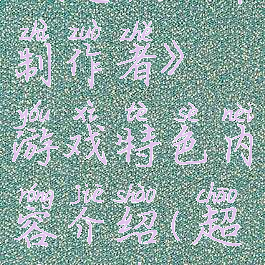 zhì zuò zhě
制作者》
yóu xì tè sè nèi
游戏特色内
róng jiè shào chāo
容介绍(超